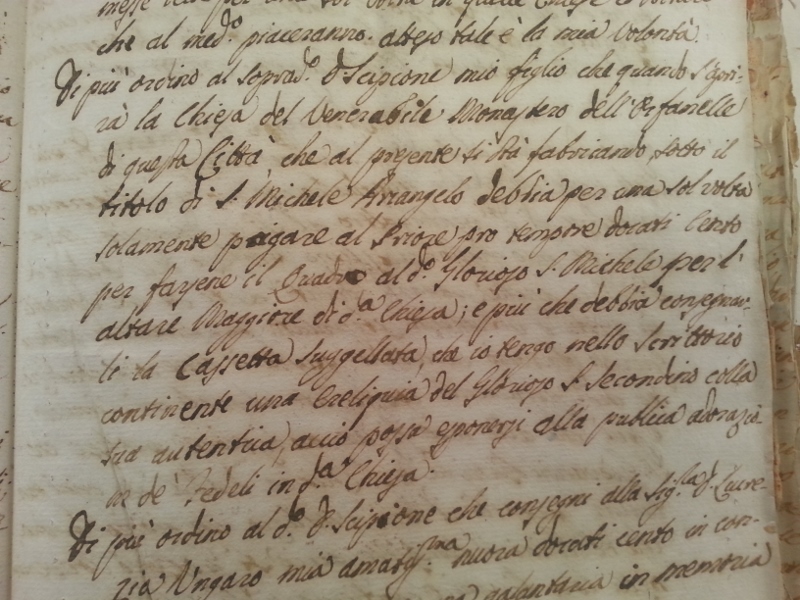 messe lette per una sol volta in quelle Chiese
che al med.º piaceranno. attego tale è la mia volontà.
Di più ordino al soprad.º d. Scipione mio figlio che quando s'apri-
rà la Chiesa del Venerabile Monastero dell'Orfanelle
di questa Città che al presente si stà fabricando, sotto il
titolo di S. Michele Arcangelo debbia per una sol volta
solamente pagare al Priore pro tempore docati Cento
per farsene il Quadro al d.º Glorioso S. Michele per l'
altare Maggiore di d.ª Chiesa; e più che debbia consegnar-
li la Cassetta suggellata, che io tengo nello Scrittorio
continente una Creliquia del Glorioso S. Secondino colla
sua autentica, acciò possa esponersi alla publica adorazio-
ne de' Fedeli in d.ª Chiesa.
Di più ordino al d.º d. Scipione che consegni alla Sig.ra d. Lucre-
zia Ungaro mia amatis.ma nuora docati cento in con-
galantaria in memoria